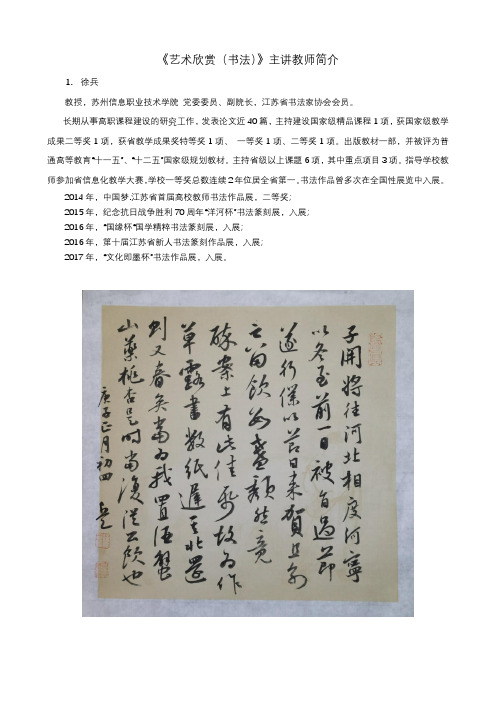 《艺术欣赏（书法）》主讲教师简介
1. 徐兵
教授，苏州信息职业技术学院 党委委员、副院长，江苏省书法家协会会员。
长期从事高职课程建设的研究工作，发表论文近40篇，主持建设国家级精品课程1项，获国家级教学
成果二等奖1项，获省教学成果奖特等奖1项、 一等奖1项、二等奖1项。出版教材一部，并被评为普
通高等教育“十一五”、“十二五”国家级规划教材。主持省级以上课题6项，其中重点项目3项。指导学校教
师参加省信息化教学大赛，学校一等奖总数连续2年位居全省第一。书法作品曾多次在全国性展览中入展。
2014年，中国梦.江苏省首届高校教师书法作品展，二等奖；
2015年，纪念抗日战争胜利70周年“洋河杯”书法篆刻展，入展；
2016年，“国缘杯”国学精粹书法篆刻展，入展；
2016年，第十届江苏省新人书法篆刻作品展，入展；
2017年，“文化即墨杯”书法作品展，入展。
子开将往河北相度河宁
以冬至前一日被旨过节
遂行仆以节日来贺且别
之留饮数盏颓然竟
醉案上有此佳纸故为作
草露书数纸迟其北还
则又春矣当为我置酒蟹
山药桃杏是时当复从公饮也
庚子正月初四